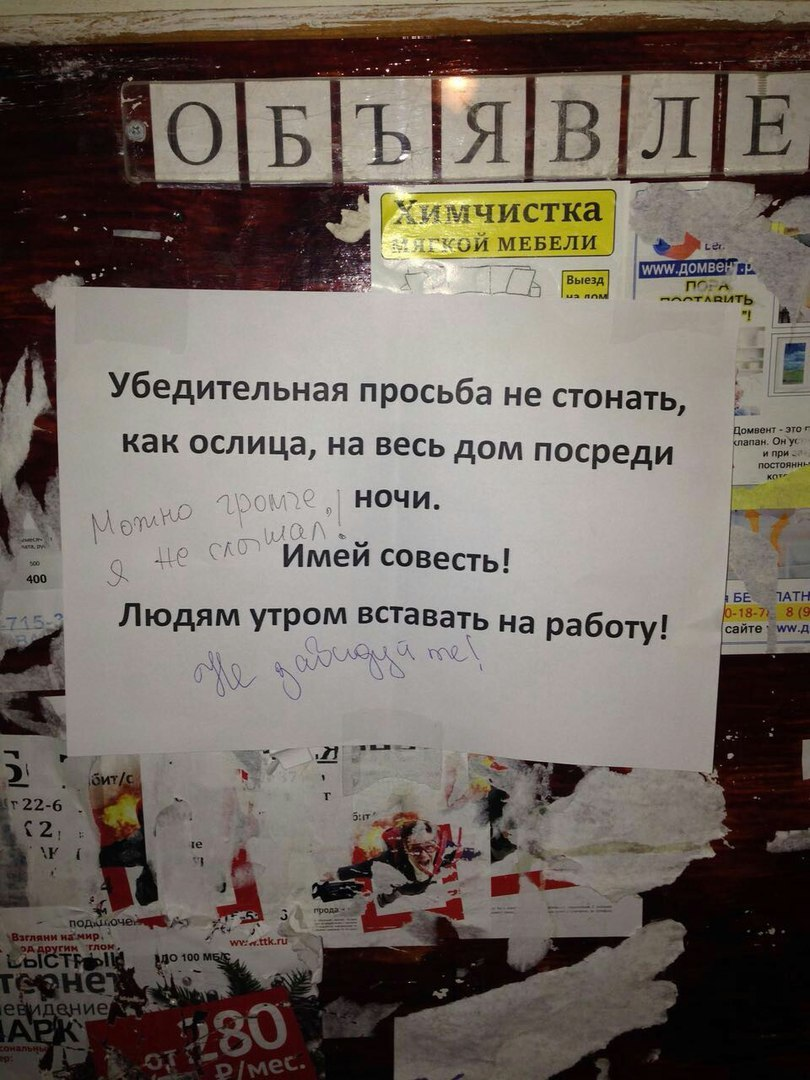 ОБЪЯВЛЕ
Химчистка
МЯГКОЙ МЕБЕЛИ
Выезд
на дом
www.домвент.р
ПОРА
ПОСТАВИТЬ
Убедительная просьба не стонать,
как ослица, на весь дом посреди
ночи.
Можно громче,
я не слышал!
Имей совесть!
Людям утром вставать на работу!
Не завидуйте!
Домвент - это
клапан. Он
и при
постоянн
500
400
715-3
БЕ ПЛАТН
0-18-7 8 (9
сайте www.д
бит/с
22-6
www.ttk.ru
Взгляни на мир
под другим углом
ДО 100 МБ/С
от 280
₽/мес.